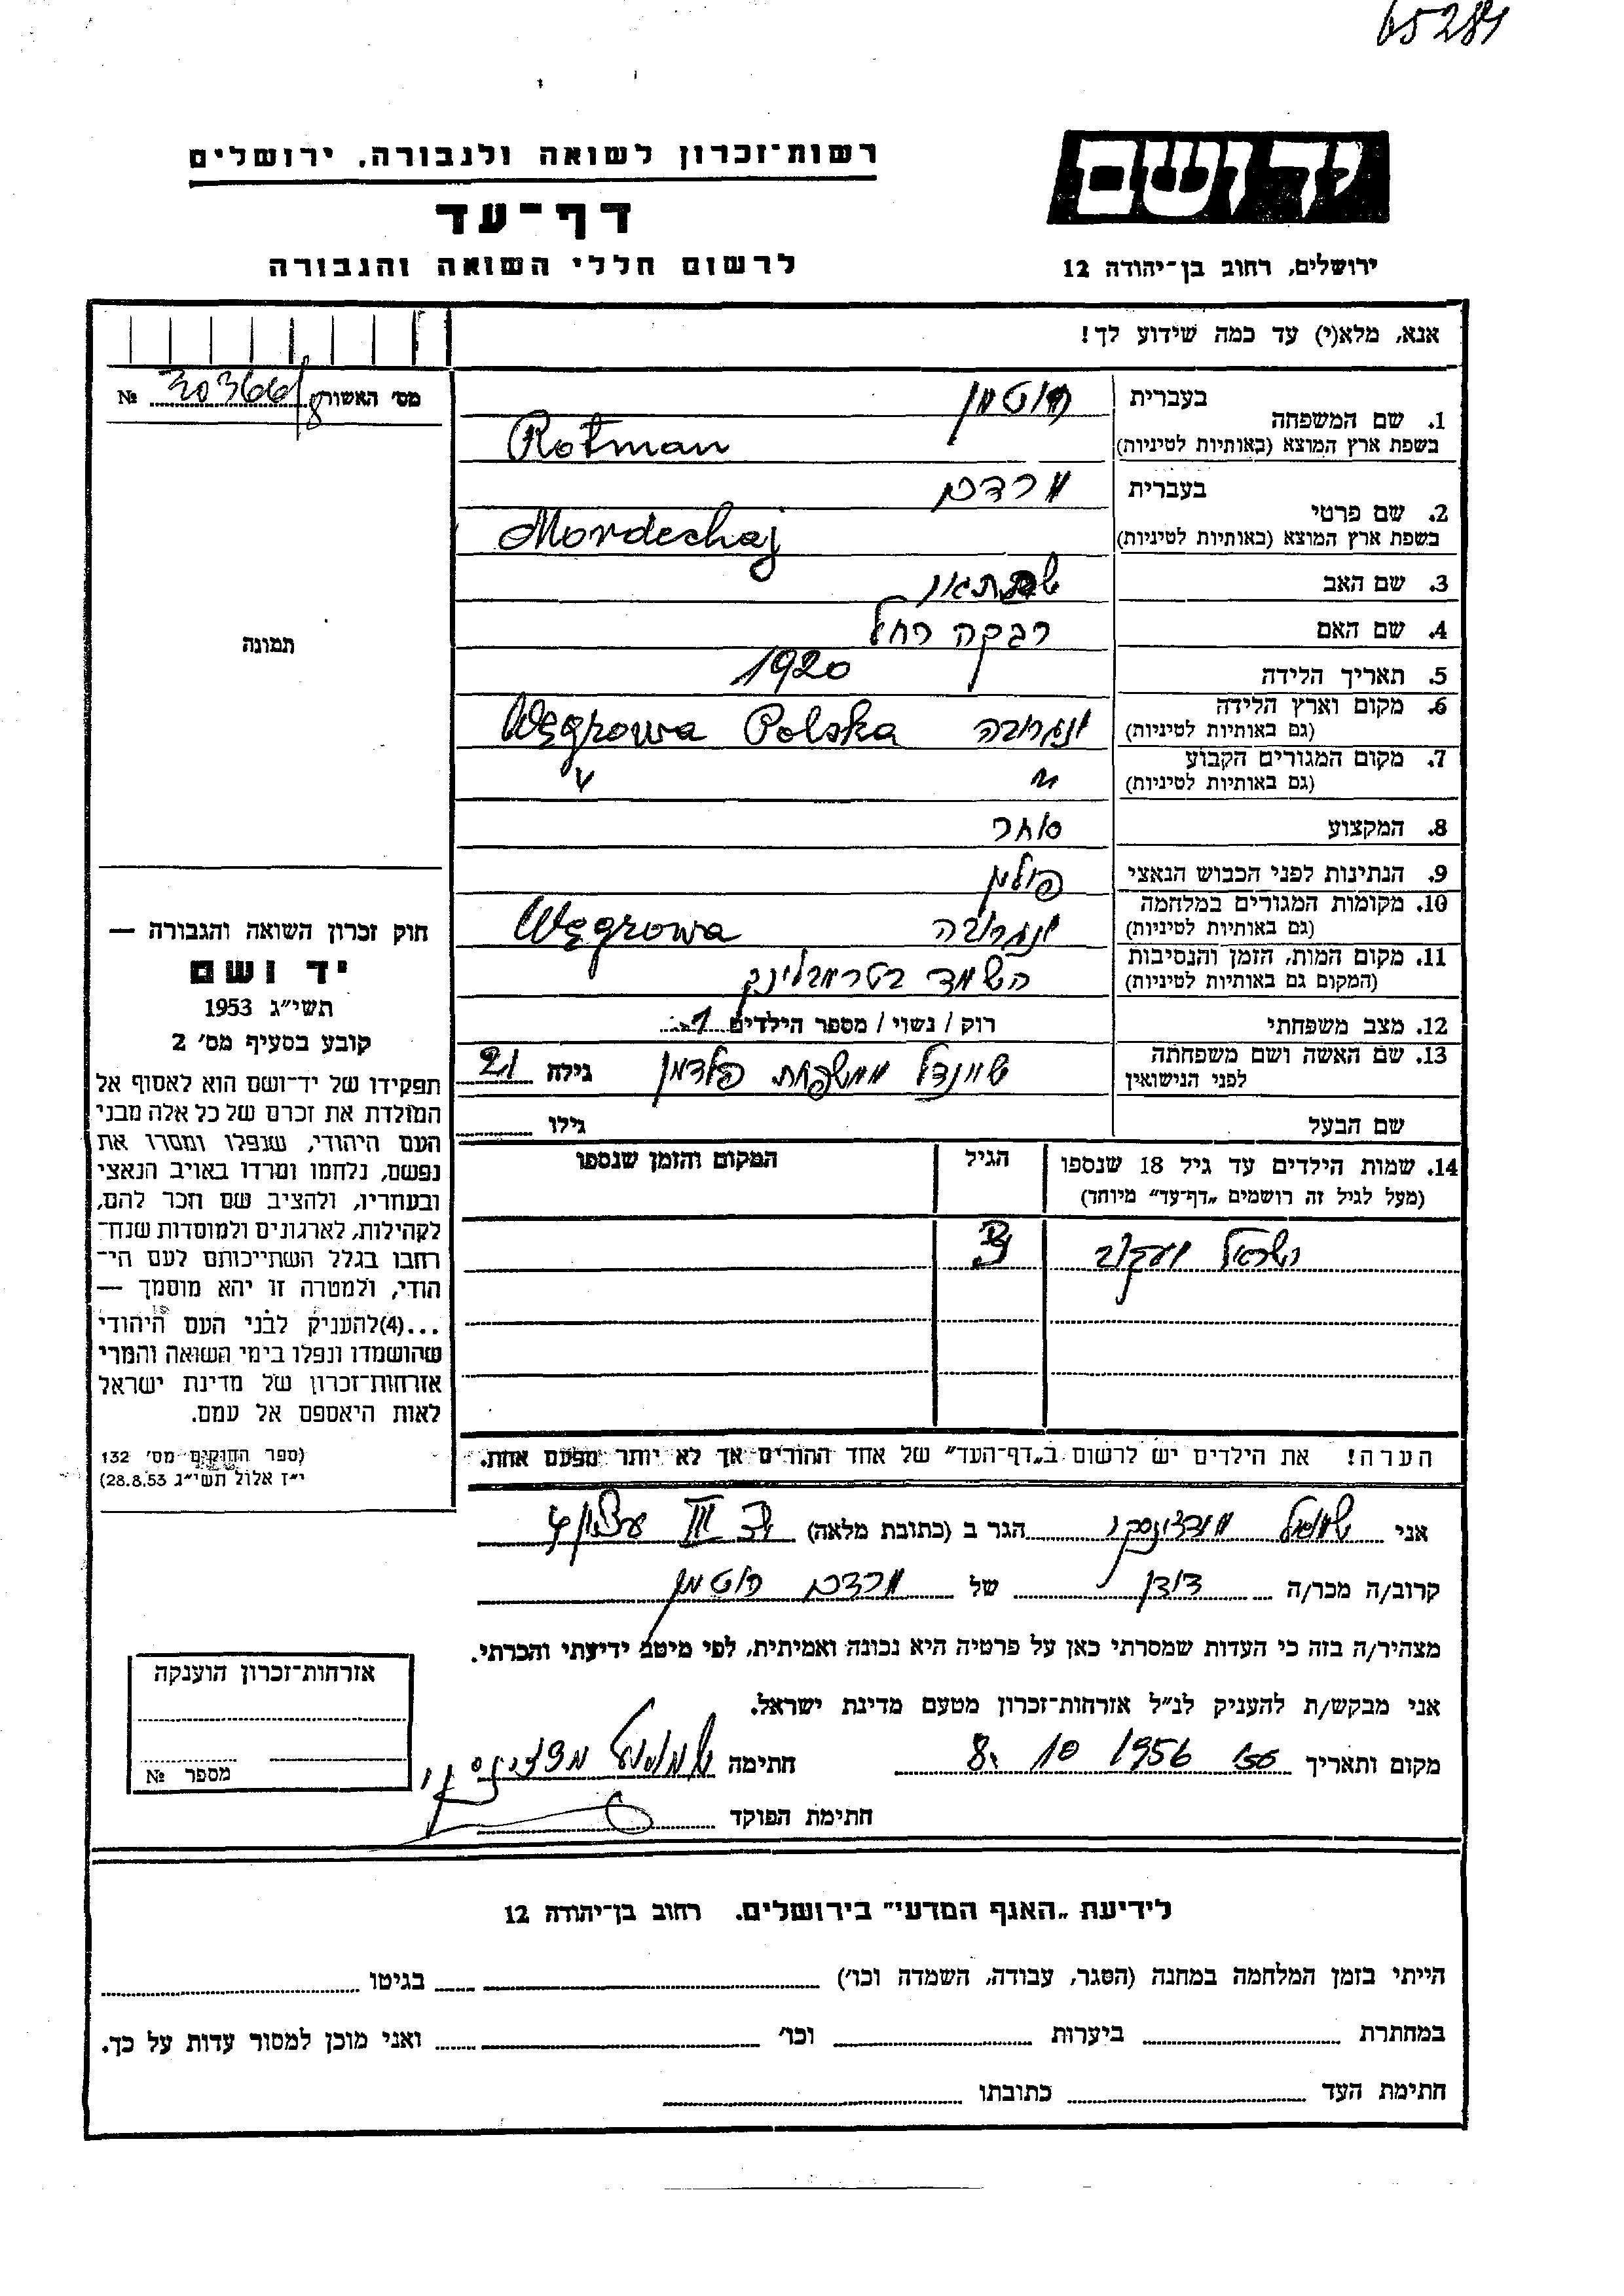 65284
ידושם
רשות־זכרון לשואה ולגבורה, ירושלים
דף־עד
לרשום חללי השואה והגבורה
ירושלים, רחוב בן־יהודה 12
אנא, מלא(י) עד כמה שידוע לך!
מס' האשור 30366/8 №
תמונה
1. שם המשפחה
בעברית רוטמן
בשפת ארץ המוצא (באותיות לטיניות) Rotman
2. שם פרטי
בעברית מרדכי
בשפת ארץ המוצא (באותיות לטיניות) Mordechaj
3. שם האב
4. שם האם רבקה רחל
5. תאריך הלידה 1920
6. מקום וארץ הלידה
(גם באותיות לטיניות) ונגרובה Węgrowa Polska
7. מקום המגורים הקבוע
(גם באותיות לטיניות) " "
8. המקצוע סוחר
9. הנתינות לפני הכבוש הנאצי פולין
10. מקומות המגורים במלחמה
(גם באותיות לטיניות) ונגרובה Węgrowa
11. מקום המות, הזמן והנסיבות
(המקום גם באותיות לטיניות) השמד בטרמבלינקה
12. מצב משפחתי רוק / נשוי / מספר הילדים 1
13. שם האשה ושם משפחתה
לפני הנישואין שיינדל ממשפחת פלדמן גילה 21
שם הבעל גילו
14. שמות הילדים עד גיל 18 שנספו
(מעל לגיל זה רושמים „דף־עד" מיוחד)
הגיל
המקום והזמן שנספו
ישראל יעקוב
חוק זכרון השואה והגבורה —
יד ושם
תשי"ג 1953
קובע בסעיף מס' 2
תפקידו של יד־ושם הוא לאסוף אל
המולדת את זכרם של כל אלה מבני
העם היהודי, שנפלו ומסרו את
נפשם, נלחמו ומרדו באויב הנאצי
ובעוזריו, ולהציב שם וזכר להם,
לקהילות, לארגונים ולמוסדות שנח־
רחבו בגלל השתייכותם לעם הי־
הודי, ולמטרה זו יהא מוסמך —
...(4) להעניק לבני העם היהודי
שהושמדו ונפלו בימי השואה והמרי
אזרחות־זכרון של מדינת ישראל
לאות היאספם אל עמם.
(ספר החוקים מס' 132
י"ז אלול תשי"ג 28.8.53)
הערה! את הילדים יש לרשום ב„דף־העד" של אחד ההורים אך לא יותר מפעם אחת.
אני שמואל הגר ב (כתובת מלאה)
קרוב/ה מכר/ה דודן של מרדכי רוטמן
מצהיר/ה בזה כי העדות שמסרתי כאן על פרטיה היא נכונה ואמיתית, לפי מיטב ידיעתי והכרתי.
אני מבקש/ת להעניק לנ"ל אזרחות־זכרון מטעם מדינת ישראל.
מקום ותאריך 8. 10 1956 חתימה
חתימת הפוקד
אזרחות־זכרון הוענקה
מספר №
לידיעת „האגף המדעי" בירושלים. רחוב בן־יהודה 12
הייתי בזמן המלחמה במחנה (הסגר, עבודה, השמדה וכו') בגיטו
במחתרת ביערות וכו' ואני מוכן למסור עדות על כך.
חתימת העד כתובתו